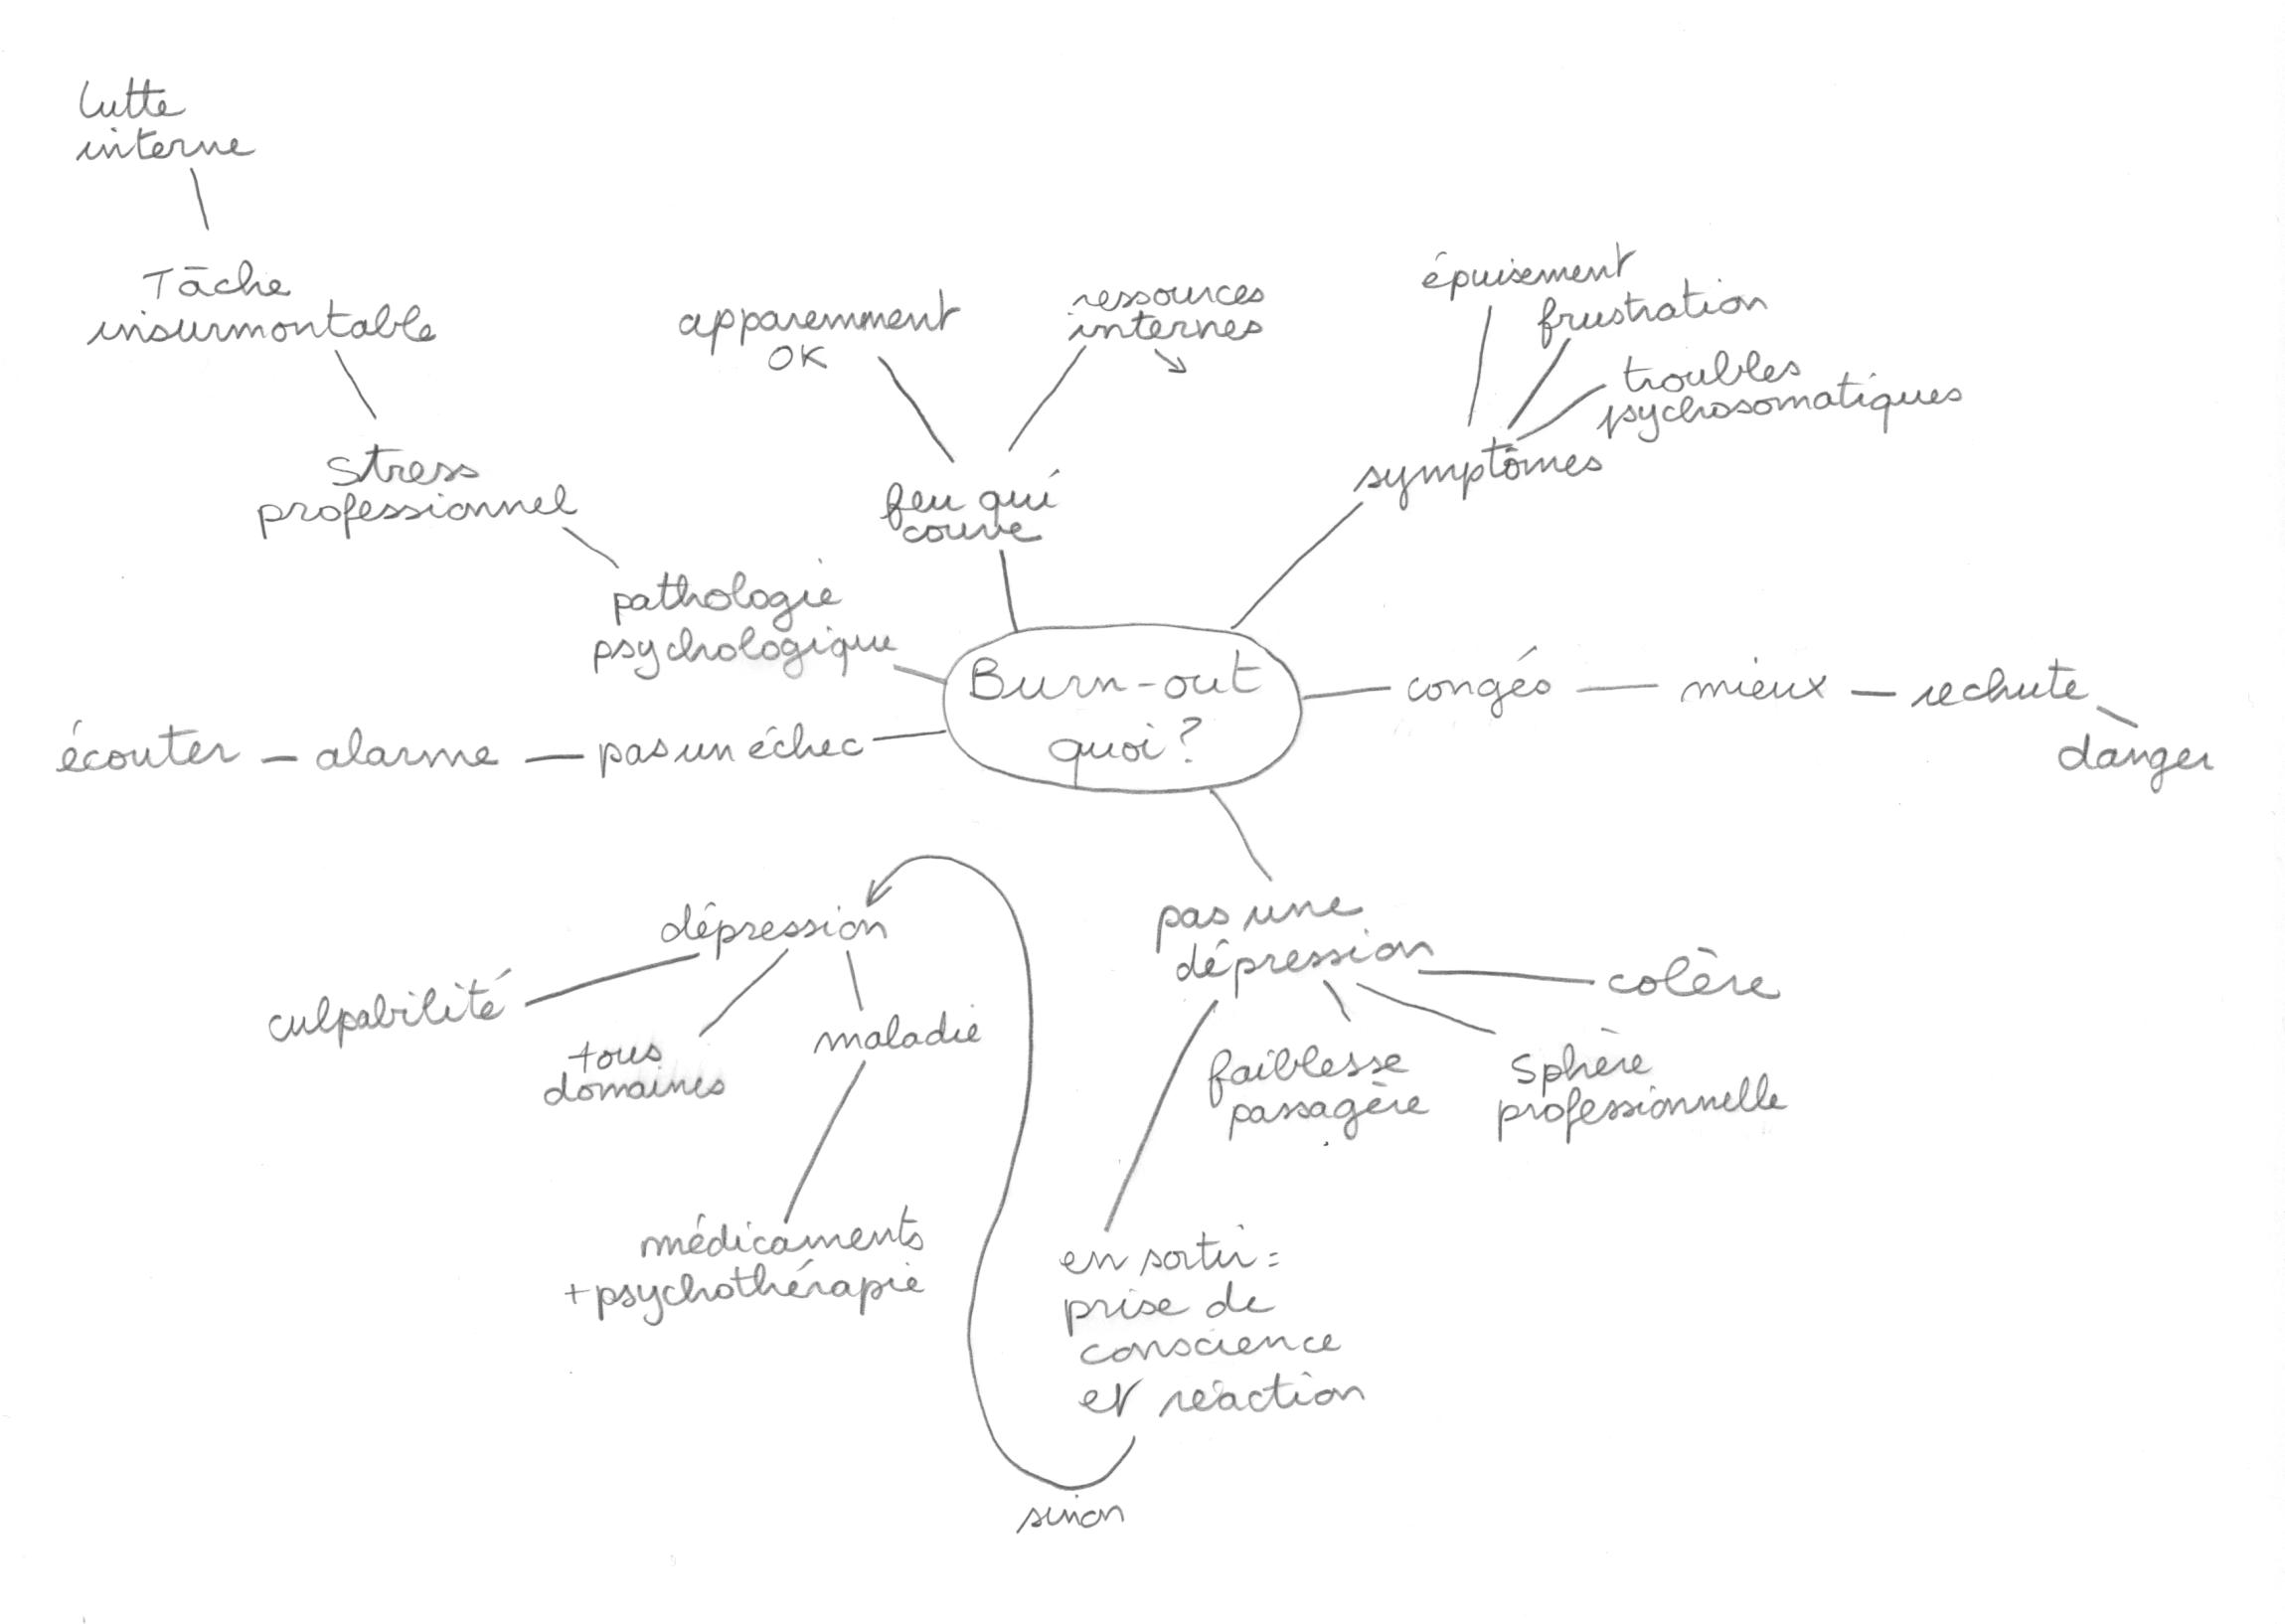 lutte
interne
Tâche
insurmontable
Stress
professionnel
pathologie
psychologique
apparemment
OK
ressources
internes
feu qui
couve
épuisement
frustration
troubles
psychosomatiques
symptômes
Burn-out
quoi ?
congés
mieux
rechute
danger
écouter
alarme
pas un échec
dépression
culpabilité
tous
domaines
maladie
médicaments
+ psychothérapie
pas une
dépression
colère
faiblesse
passagère
Sphère
professionnelle
en sortir =
prise de
conscience
et réaction
sinon